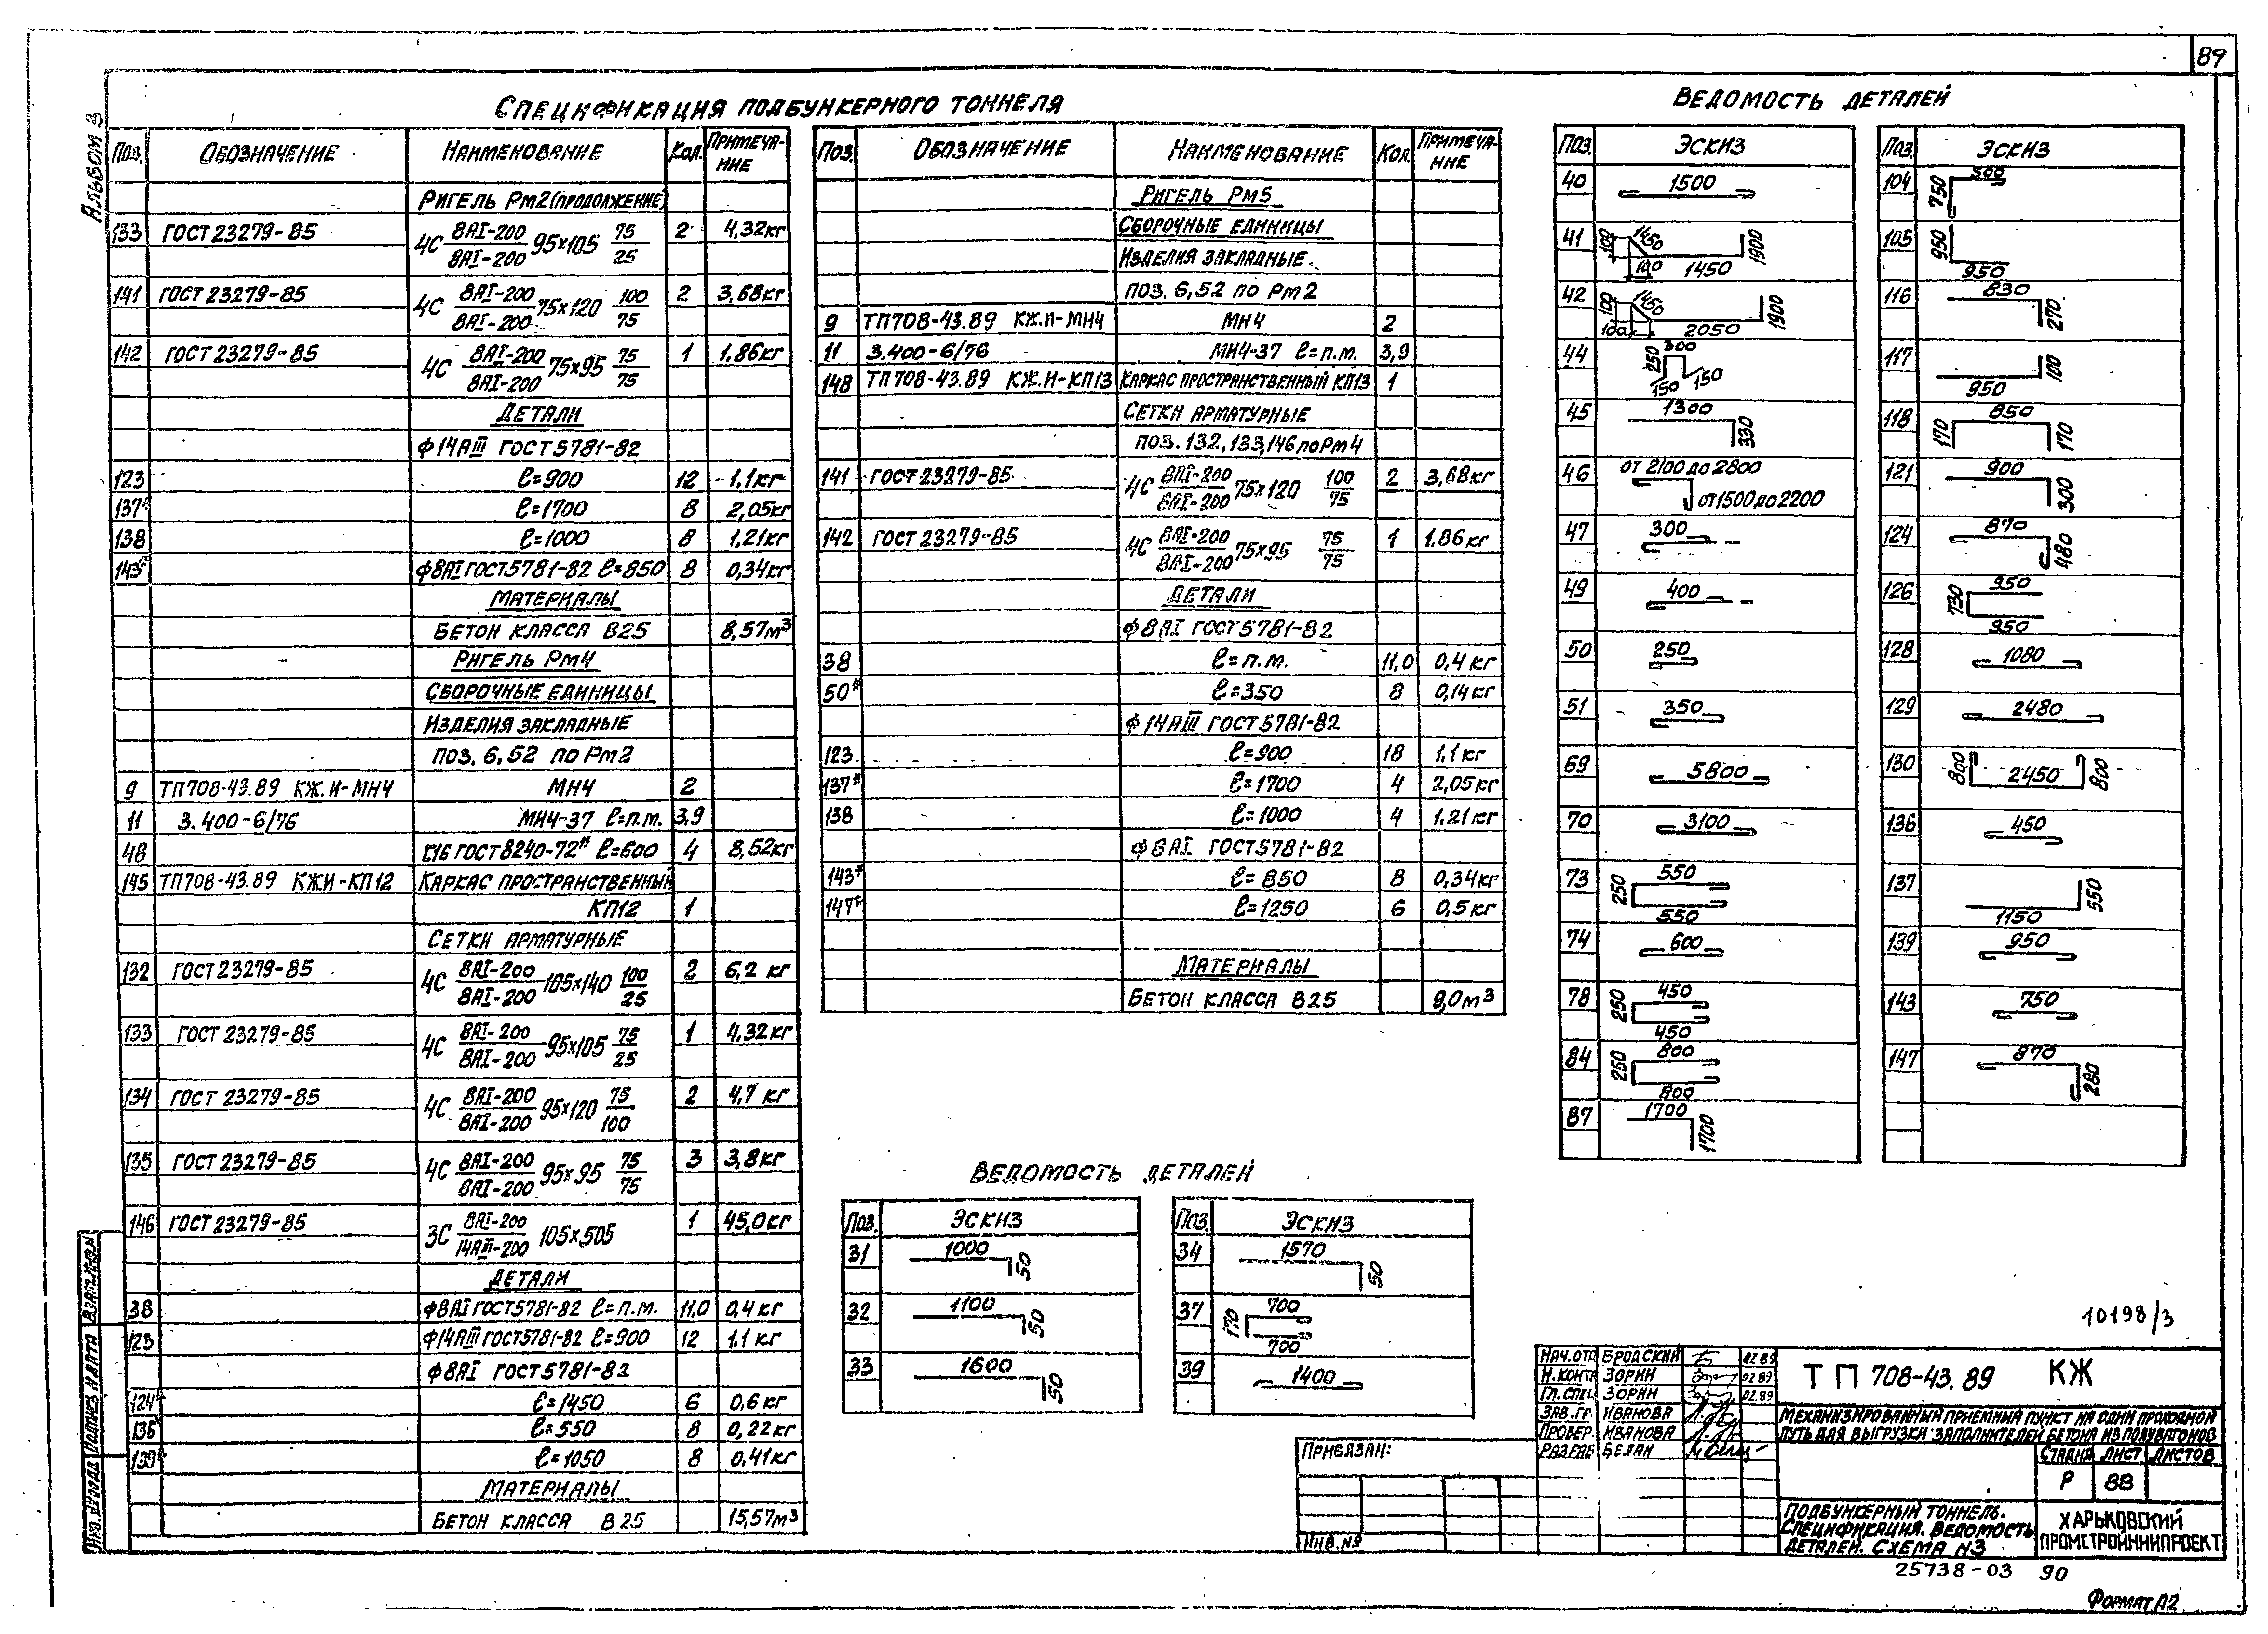 89
Альбом 3
Спецификация подбункерного тоннеля
Поз. Обозначение Наименование Кол. Примеча-ние
Ригель Рм2 (продолжение)
133 ГОСТ 23279-85 4С 8АI-200/8АI-200 95×105 75/25 2 4,32кг
141 ГОСТ 23279-85 4С 8АI-200/8АI-200 75×120 100/75 2 3,68кг
142 ГОСТ 23279-85 4С 8АI-200/8АI-200 75×95 75/75 1 1,86кг
Детали
ф14АIII ГОСТ 5781-82
123 ℓ=900 12 1,1кг
137* ℓ=1700 8 2,05кг
138 ℓ=1000 8 1,21кг
143* ф8АI ГОСТ 5781-82 ℓ=850 8 0,34кг
Материалы
Бетон класса В25 8,57м³
Ригель Рм4
Сборочные единицы
Изделия закладные
поз. 6,52 по Рм2
9 ТП708-43.89 КЖ.И-МН4 МН4 2
11 3.400-6/76 МН4-37 ℓ=п.м. 3,9
48 [16 ГОСТ 8240-72* ℓ=600 4 8,52кг
145 ТП708-43.89 КЖИ-КП12 Каркас пространственный
КП12 1
Сетки арматурные
132 ГОСТ 23279-85 4С 8АI-200/8АI-200 105×140 100/25 2 6,2 кг
133 ГОСТ 23279-85 4С 8АI-200/8АI-200 95×105 75/25 1 4,32кг
134 ГОСТ 23279-85 4С 8АI-200/8АI-200 95×120 75/100 2 4,7 кг
135 ГОСТ 23279-85 4С 8АI-200/8АI-200 95×95 75/75 3 3,8кг
146 ГОСТ 23279-85 3С 8АI-200/14АIII-200 105×505 1 45,0кг
Детали
38 ф8АI ГОСТ 5781-82 ℓ=п.м. 11,0 0,4 кг
123 ф14АIII ГОСТ 5781-82 ℓ=900 12 1.1 кг
ф8АI ГОСТ 5781-82
124* ℓ=1450 6 0,6кг
136* ℓ=550 8 0,22кг
139* ℓ=1050 8 0,41кг
Материалы
Бетон класса В25 15,57м³
Поз. Обозначение Наименование Кол. Примеча-ние
Ригель Рм5
Сборочные единицы
Изделия закладные.
поз. 6,52 по Рм2
9 ТП708-43.89 КЖ.И-МН4 МН4 2
11 3.400-6/76 МН4-37 ℓ=п.м. 3,9
148 ТП708-43.89 КЖ.И-КП13 Каркас пространственный КП13 1
Сетки арматурные
поз. 132, 133, 146 по Рм4
141 ГОСТ 23279-85 4С 8АI-200/8АI-200 75×120 100/75 2 3,68кг
142 ГОСТ 23279-85 4С 8АI-200/8АI-200 75×95 75/75 1 1.86кг
Детали
ф8АI ГОСТ 5781-82
38 ℓ=п.м. 11,0 0,4 кг
50* ℓ=350 8 0,14кг
ф14АIII ГОСТ 5781-82
123 ℓ=900 18 1,1кг
137* ℓ=1700 4 2,05кг
138 ℓ=1000 4 1,21кг
ф8АI ГОСТ 5781-82
143* ℓ=850 8 0,34кг
147* ℓ=1250 6 0,5кг
Материалы
Бетон класса В25 9,0м³
Ведомость деталей
Поз. Эскиз
31 1000 50
32 1100 50
33 1600 50
Поз. Эскиз
34 1570 50
37 170 700 700
39 1400
Ведомость деталей
Поз. Эскиз
40 1500
41 100 1450 100 1450 1900
42 100 1450 100 2050 1900
44 250 300 150 150
45 1300 330
46 от 2100 до 2800 от 1500 до 2200
47 300
49 400
50 250
51 350
69 5800
70 3100
73 250 550 550
74 600
78 250 450 450
84 250 800 800
87 1700 1700
Поз. Эскиз
104 750 300
105 950 950
116 830 270
117 950 100
118 170 850 170
121 900 300
124 870 480
126 730 350 350
128 1080
129 2480
130 800 2450 800
136 450
137 1150 550
139 950
143 750
147 870 280
10198/3
Нач.отд Бродский 02.89
Н.контр Зорин 02.89
Гл.спец Зорин 02.89
Зав.гр. Иванова
Провер. Иванова
Разраб Белан
Привязан:
Инв.№
ТП 708-43.89 КЖ
Механизированный приемный пункт на один проходной
путь для выгрузки заполнителей бетона из полувагонов
Стадия Лист Листов
Р 88
Подбункерный тоннель.
Спецификация. Ведомость
деталей. Схема №3
Харьковский
Промстройниипроект
25738-03 90
Формат А2
Взам.инв.№
Подпись и дата
Инв.№ подл